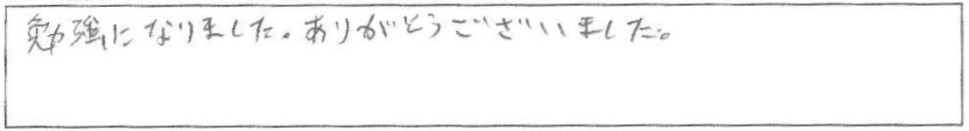 勉強になりました。ありがとうございました。